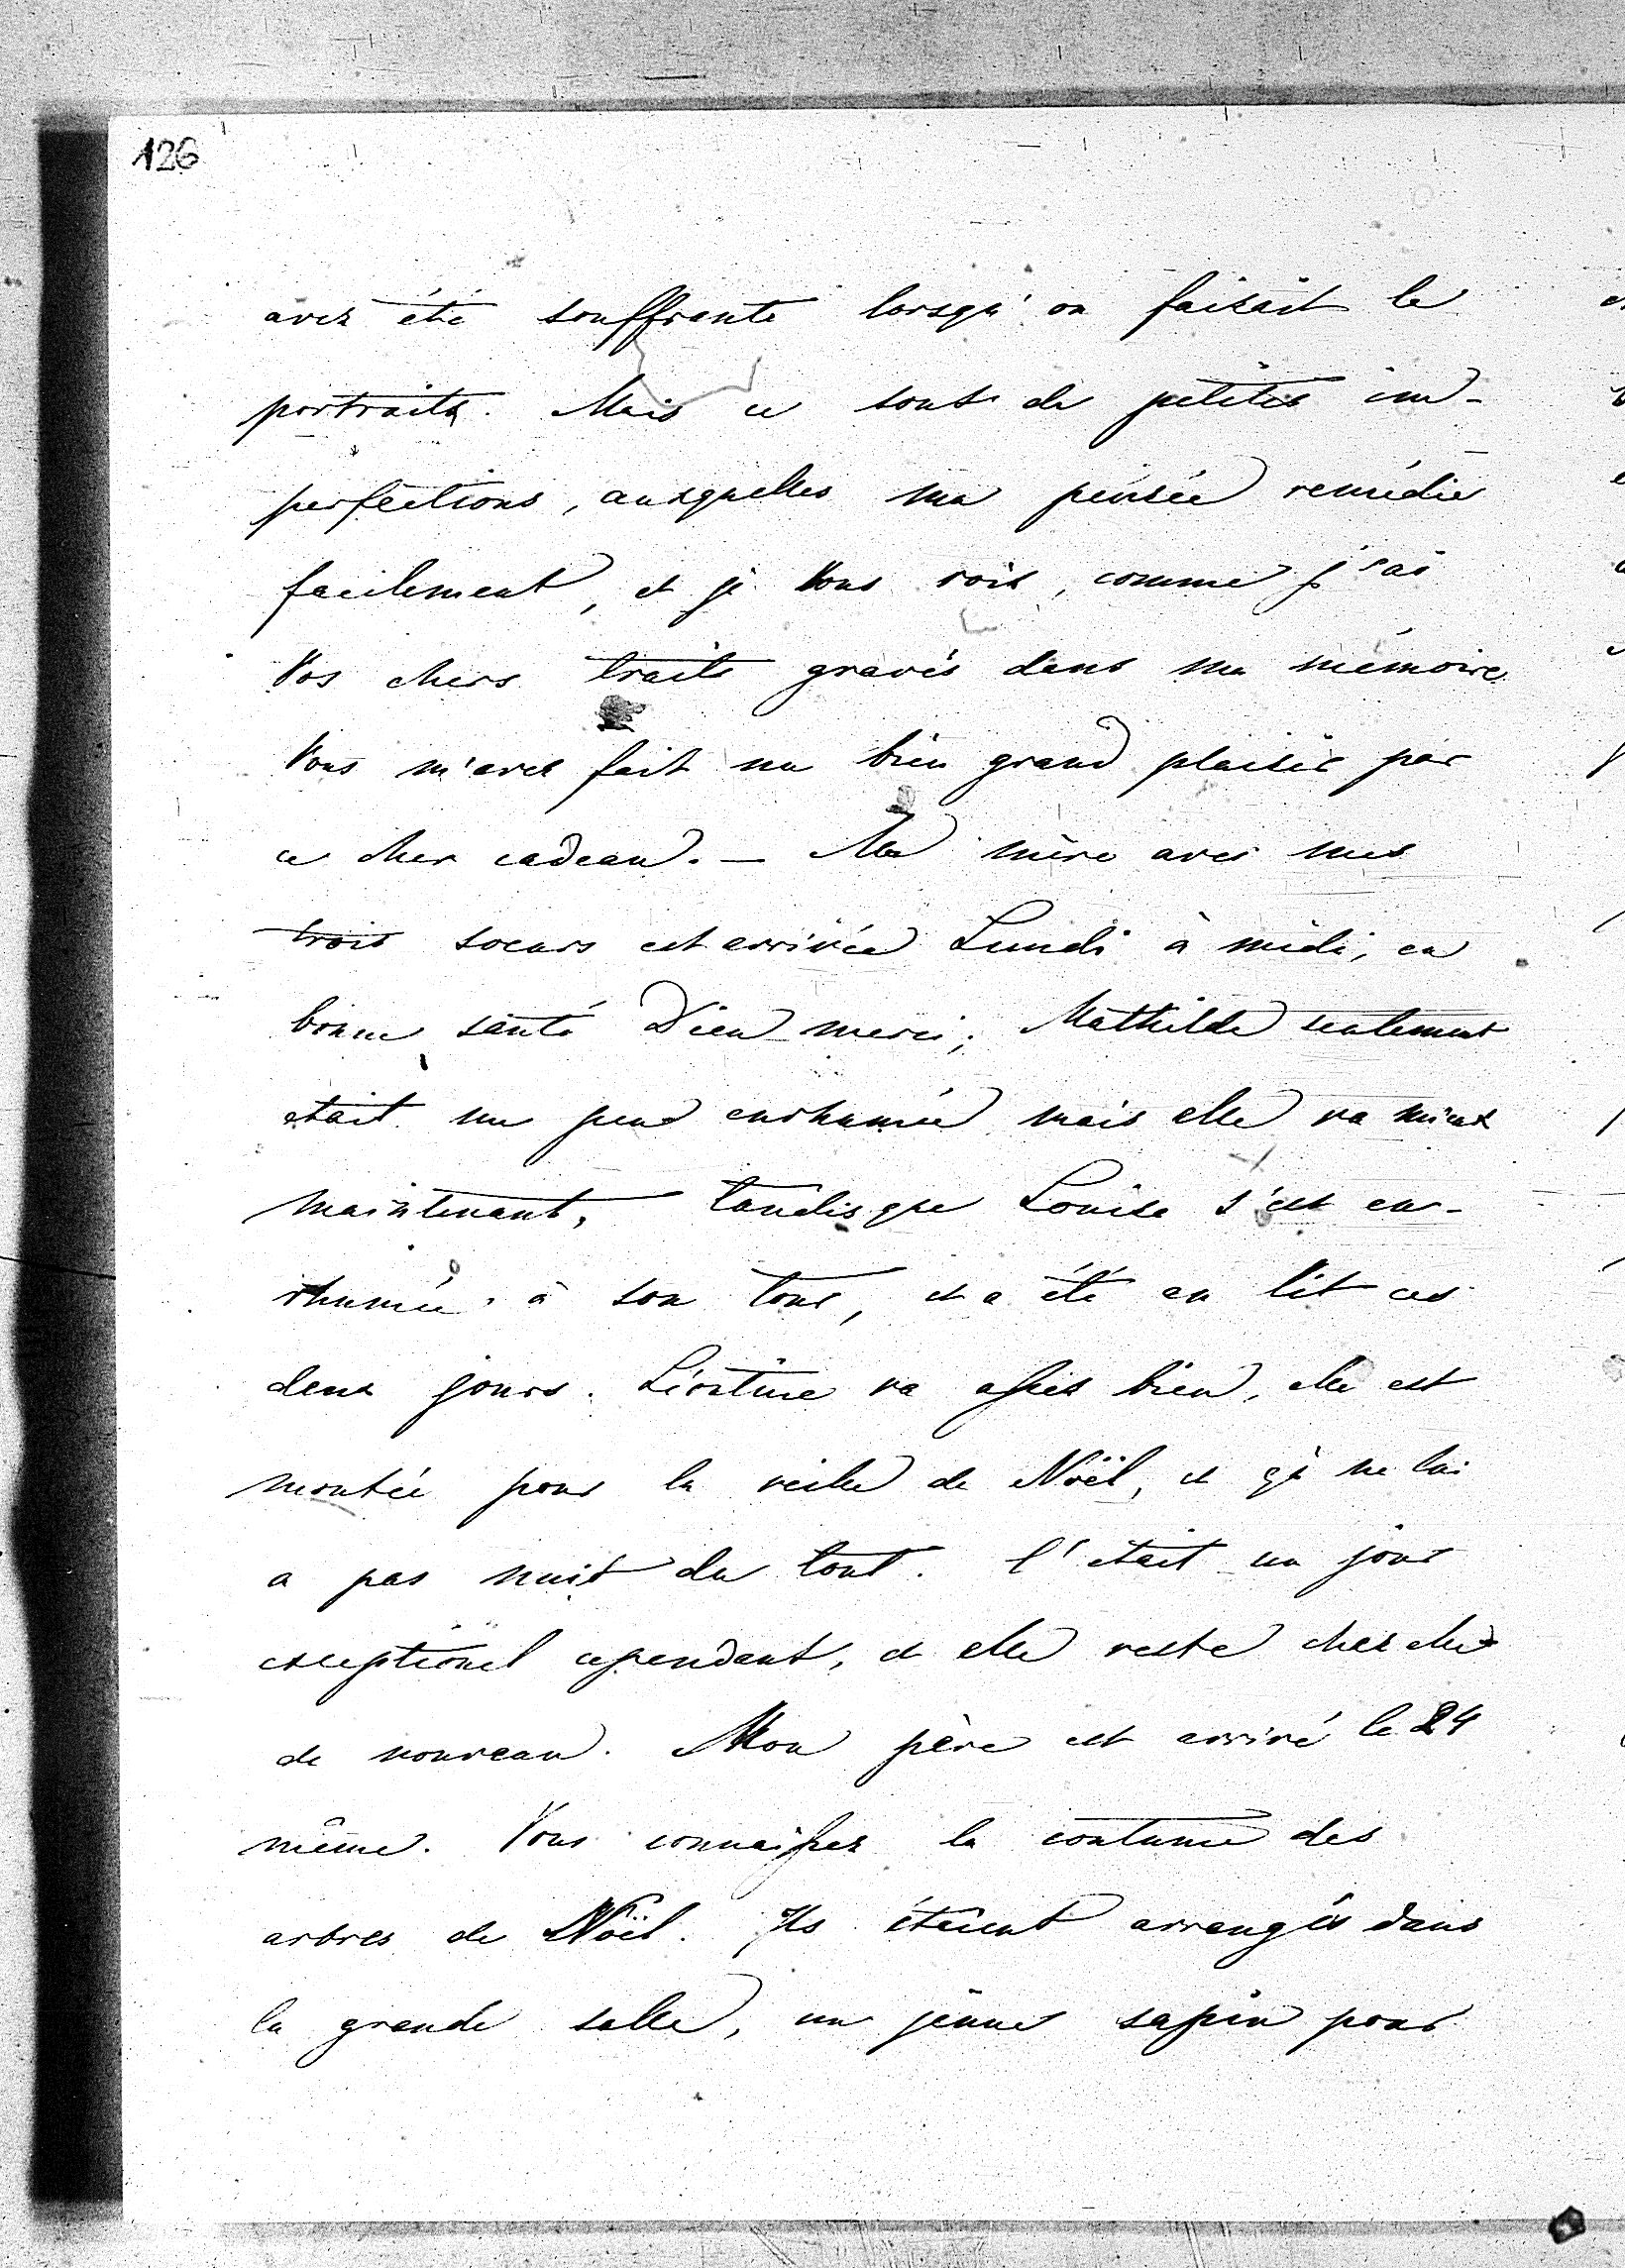 126
avez été souffrante lorsqu'on faisait le
portrait. Mais ce sont de petites im-
perfections, auxquelles ma pensée remédie
facilement, et je Vous vois, comme j'ai
Vos chers traits gravés dans ma mémoire
Vous m'avez fait un bien grand plaisir par
ce cher cadeau. — Ma mère avec mes
trois soeurs est arrivée Lundi à midi, en
bonne santé Dieu merci; Mathilde seulement
etait un peu enrhumée mais elle va mieux
maintenant, tandisque Louise s'est en-
rhumée à son tour, et a été au lit ces
deux jours. Léontine va assez bien, elle est
montée pour la veille de Noël, et çà ne lui
a pas nuit du tout. C'était un jour
exceptionel cependant, et elle reste chez elle
de nouveau. Mon père est arrivé le 24
même. Vous connaissez la coutume des
arbres de Noël. Ils étaient arrangés dans
la grande salle, un jeune sapin pour